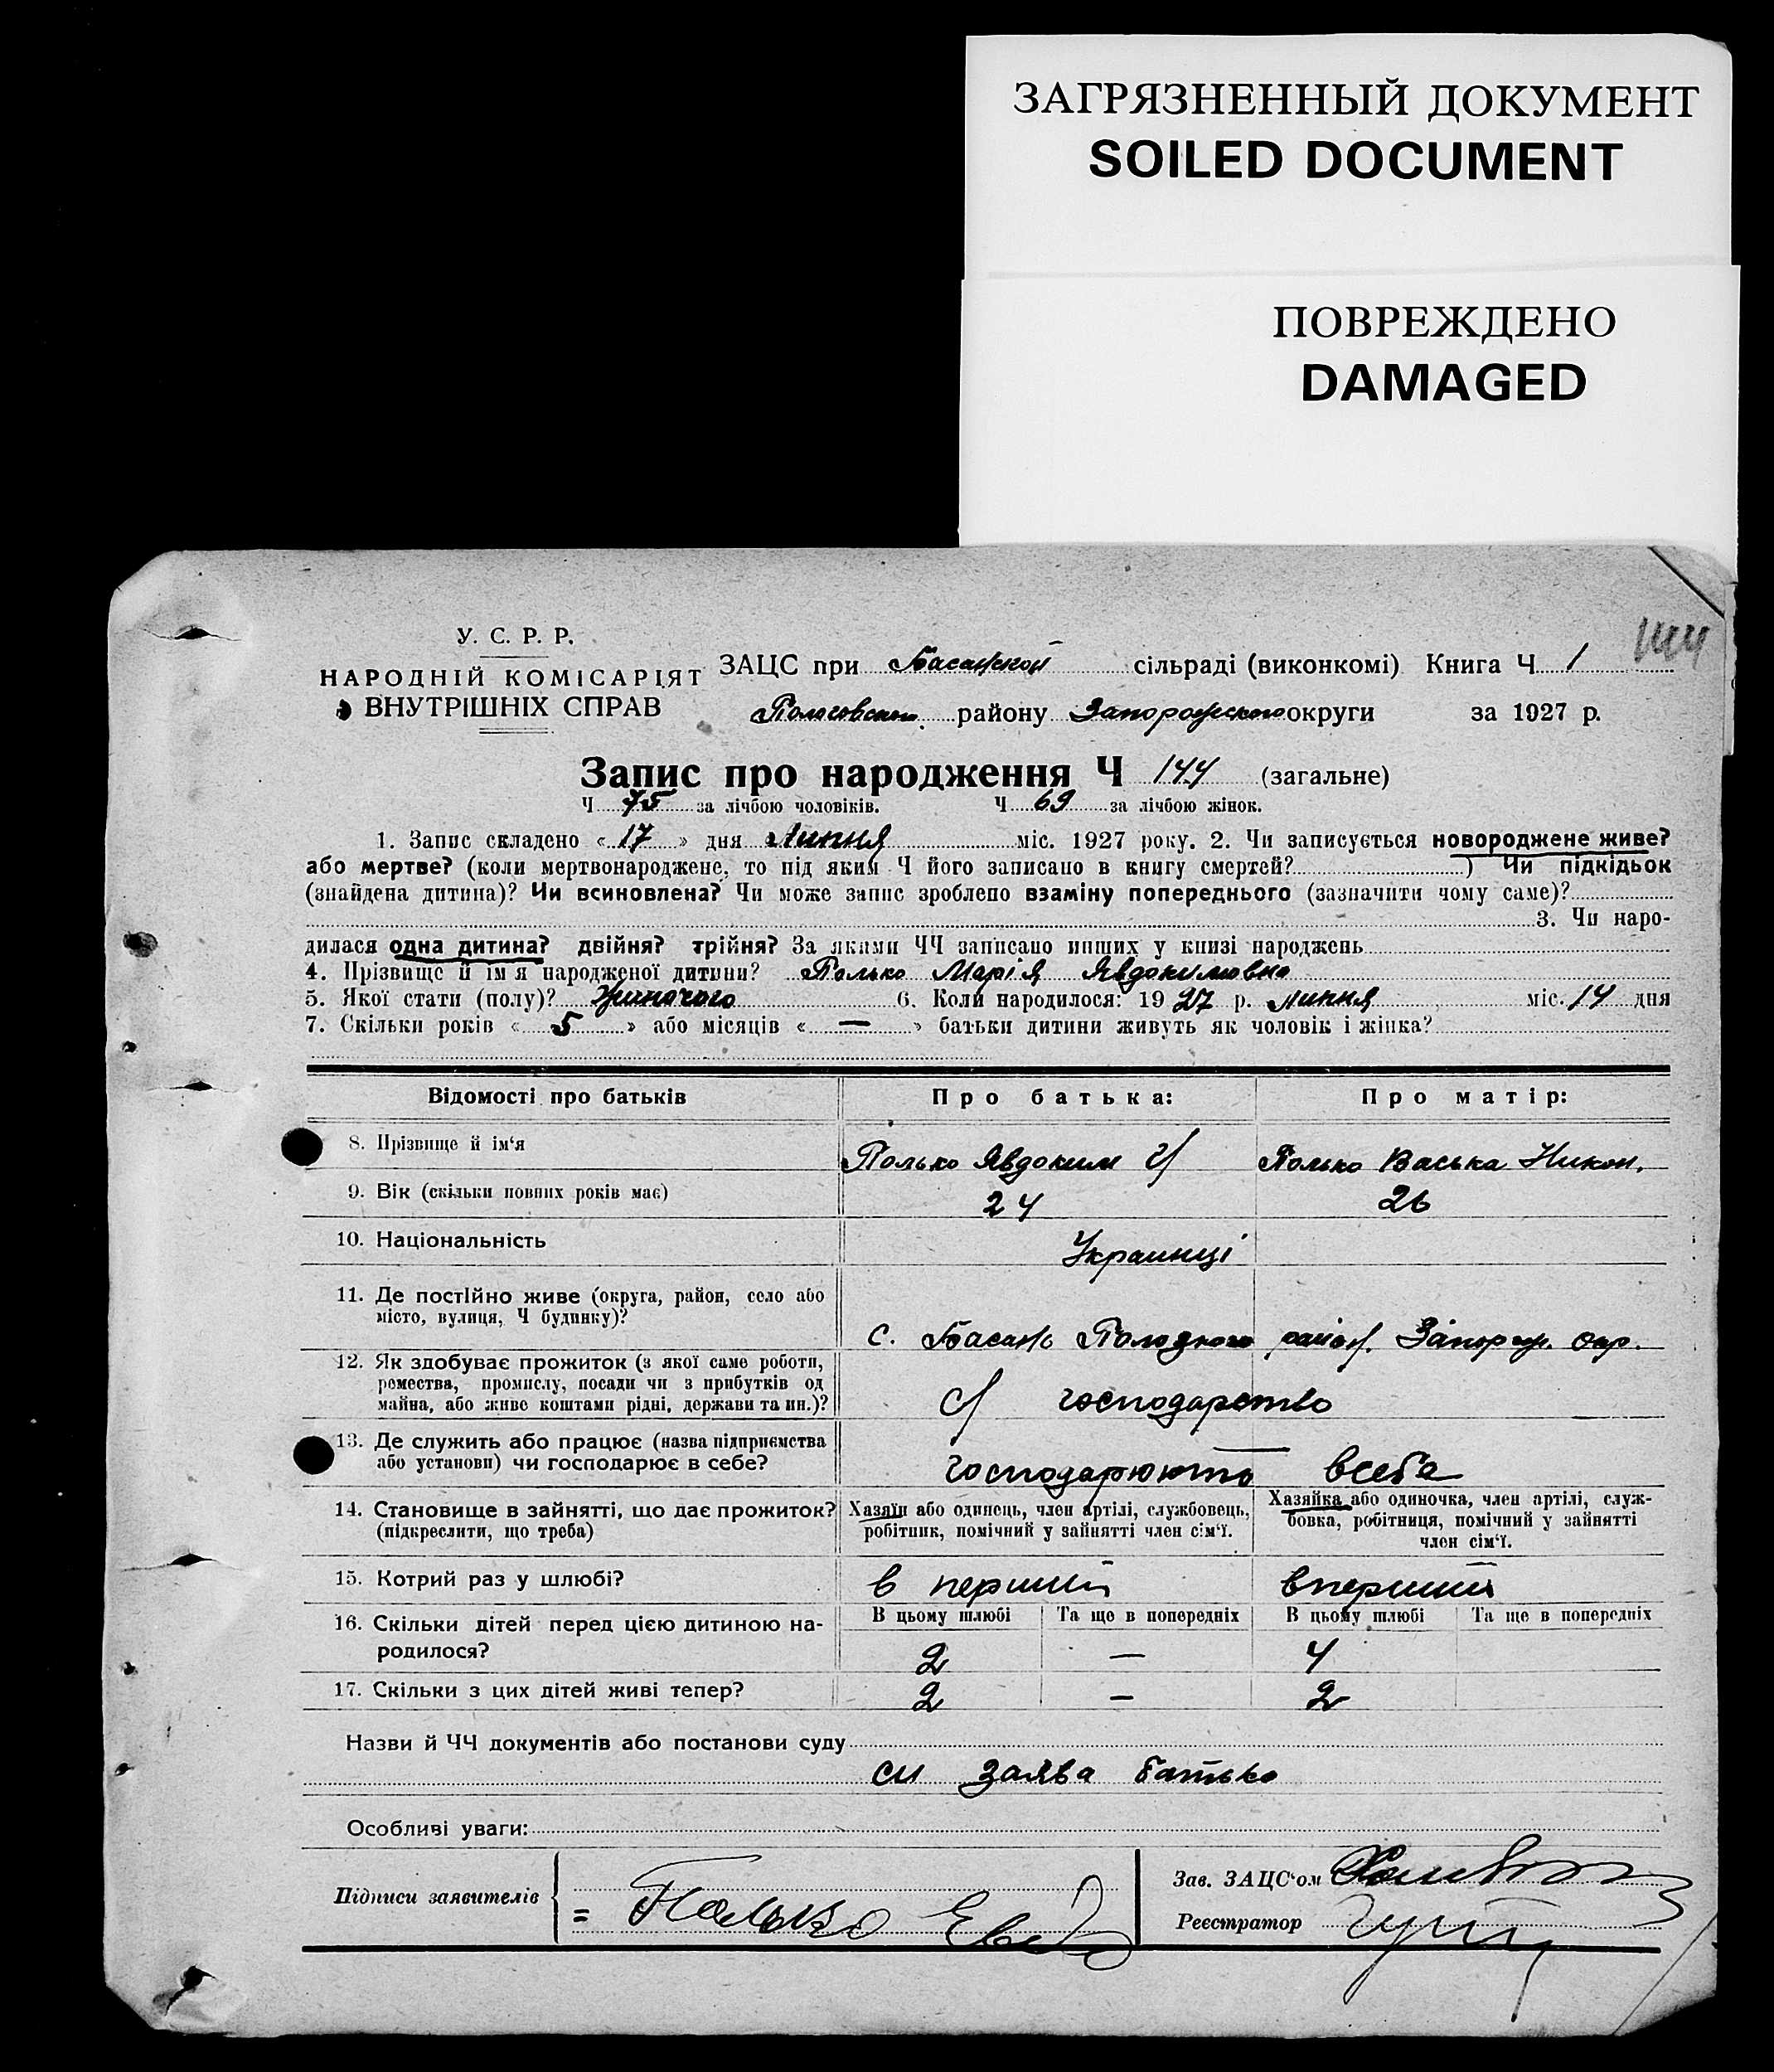 ЗАГРЯЗНЕННЫЙ ДОКУМЕНТ
SOILED DOCUMENT
ПОВРЕЖДЕНО
DAMAGED
У. С. Р. Р.
НАРОДНІЙ КОМІСАРІЯТ
ВНУТРІШНІХ СПРАВ
ЗАЦС при Басанской сільраді (виконкомі) Книга Ч 1
Пологовськ. району Запорожського округи за 1927 р.
Запис про народження Ч 144 (загальне)
Ч 75 за лічбою чоловіків. Ч 69 за лічбою жінок.
1. Запис складено «17» дня Липня міс. 1927 року. 2. Чи записується новороджене живе?
або мертве? (коли мертвонароджене, то під яким Ч його записано в книгу смертей? ) Чи підкідьок
(знайдена дитина)? Чи всиновлена? Чи може запис зроблено взаміну попереднього (зазначити чому саме)?
3. Чи наро-
дилася одна дитина? двійня? трійня? За якими ЧЧ записано инших у книзі народжень
4. Прізвище й ім'я народженої дитини? Полько Марія Явдокимовна
5. Якої стати (полу)? Жиночого 6. Коли народилося: 1927 р. липня міс. 14 дня
7. Скільки років «5» або місяців «—» батьки дитини живуть як чоловік і жінка?
Відомості про батьків Про батька: Про матір:
8. Прізвище й ім'я Полько Явдоким Полько Васька Никон.
9. Вік (скільки повних років має) 24 26
10. Національність Украинці
11. Де постійно живе (округа, район, село або
місто, вулиця, Ч будинку)?
с. Басань район. Запорож. окр.
12. Як здобуває прожиток (з якої саме роботи,
ремества, промислу, посади чи з прибутків од
майна, або живе коштами рідні, держави та ин.)?
с/ господарство
13. Де служить або працює (назва підприємства
або установи) чи господарює в себе?
господарюють всебе
14. Становище в зайнятті, що дає прожиток?
(підкреслити, що треба)
Хазяїн або одинець, член артілі, службовець,
робітник, помічний у зайнятті член сім'ї.
Хазяйка або одиночка, член артілі, служ-
бовка, робітниця, помічний у зайнятті
член сім'ї.
15. Котрий раз у шлюбі? в перший вперший
16. Скільки дітей перед цією дитиною на-
родилося?
В цьому шлюбі Та ще в попередніх В цьому шлюбі Та ще в попередніх
2 — 4
17. Скільки з цих дітей живі тепер? 2 — 2
Назви й ЧЧ документів або постанови суду
заява батько
Особливі уваги:
Підписи заявителів = Полько
Зав. ЗАЦС'ом
Реєстратор